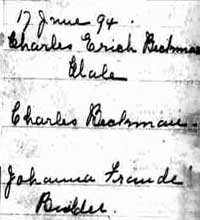 17 June 94.
Charles Erich Beckman
Male
Charles Beckman.
Johanna